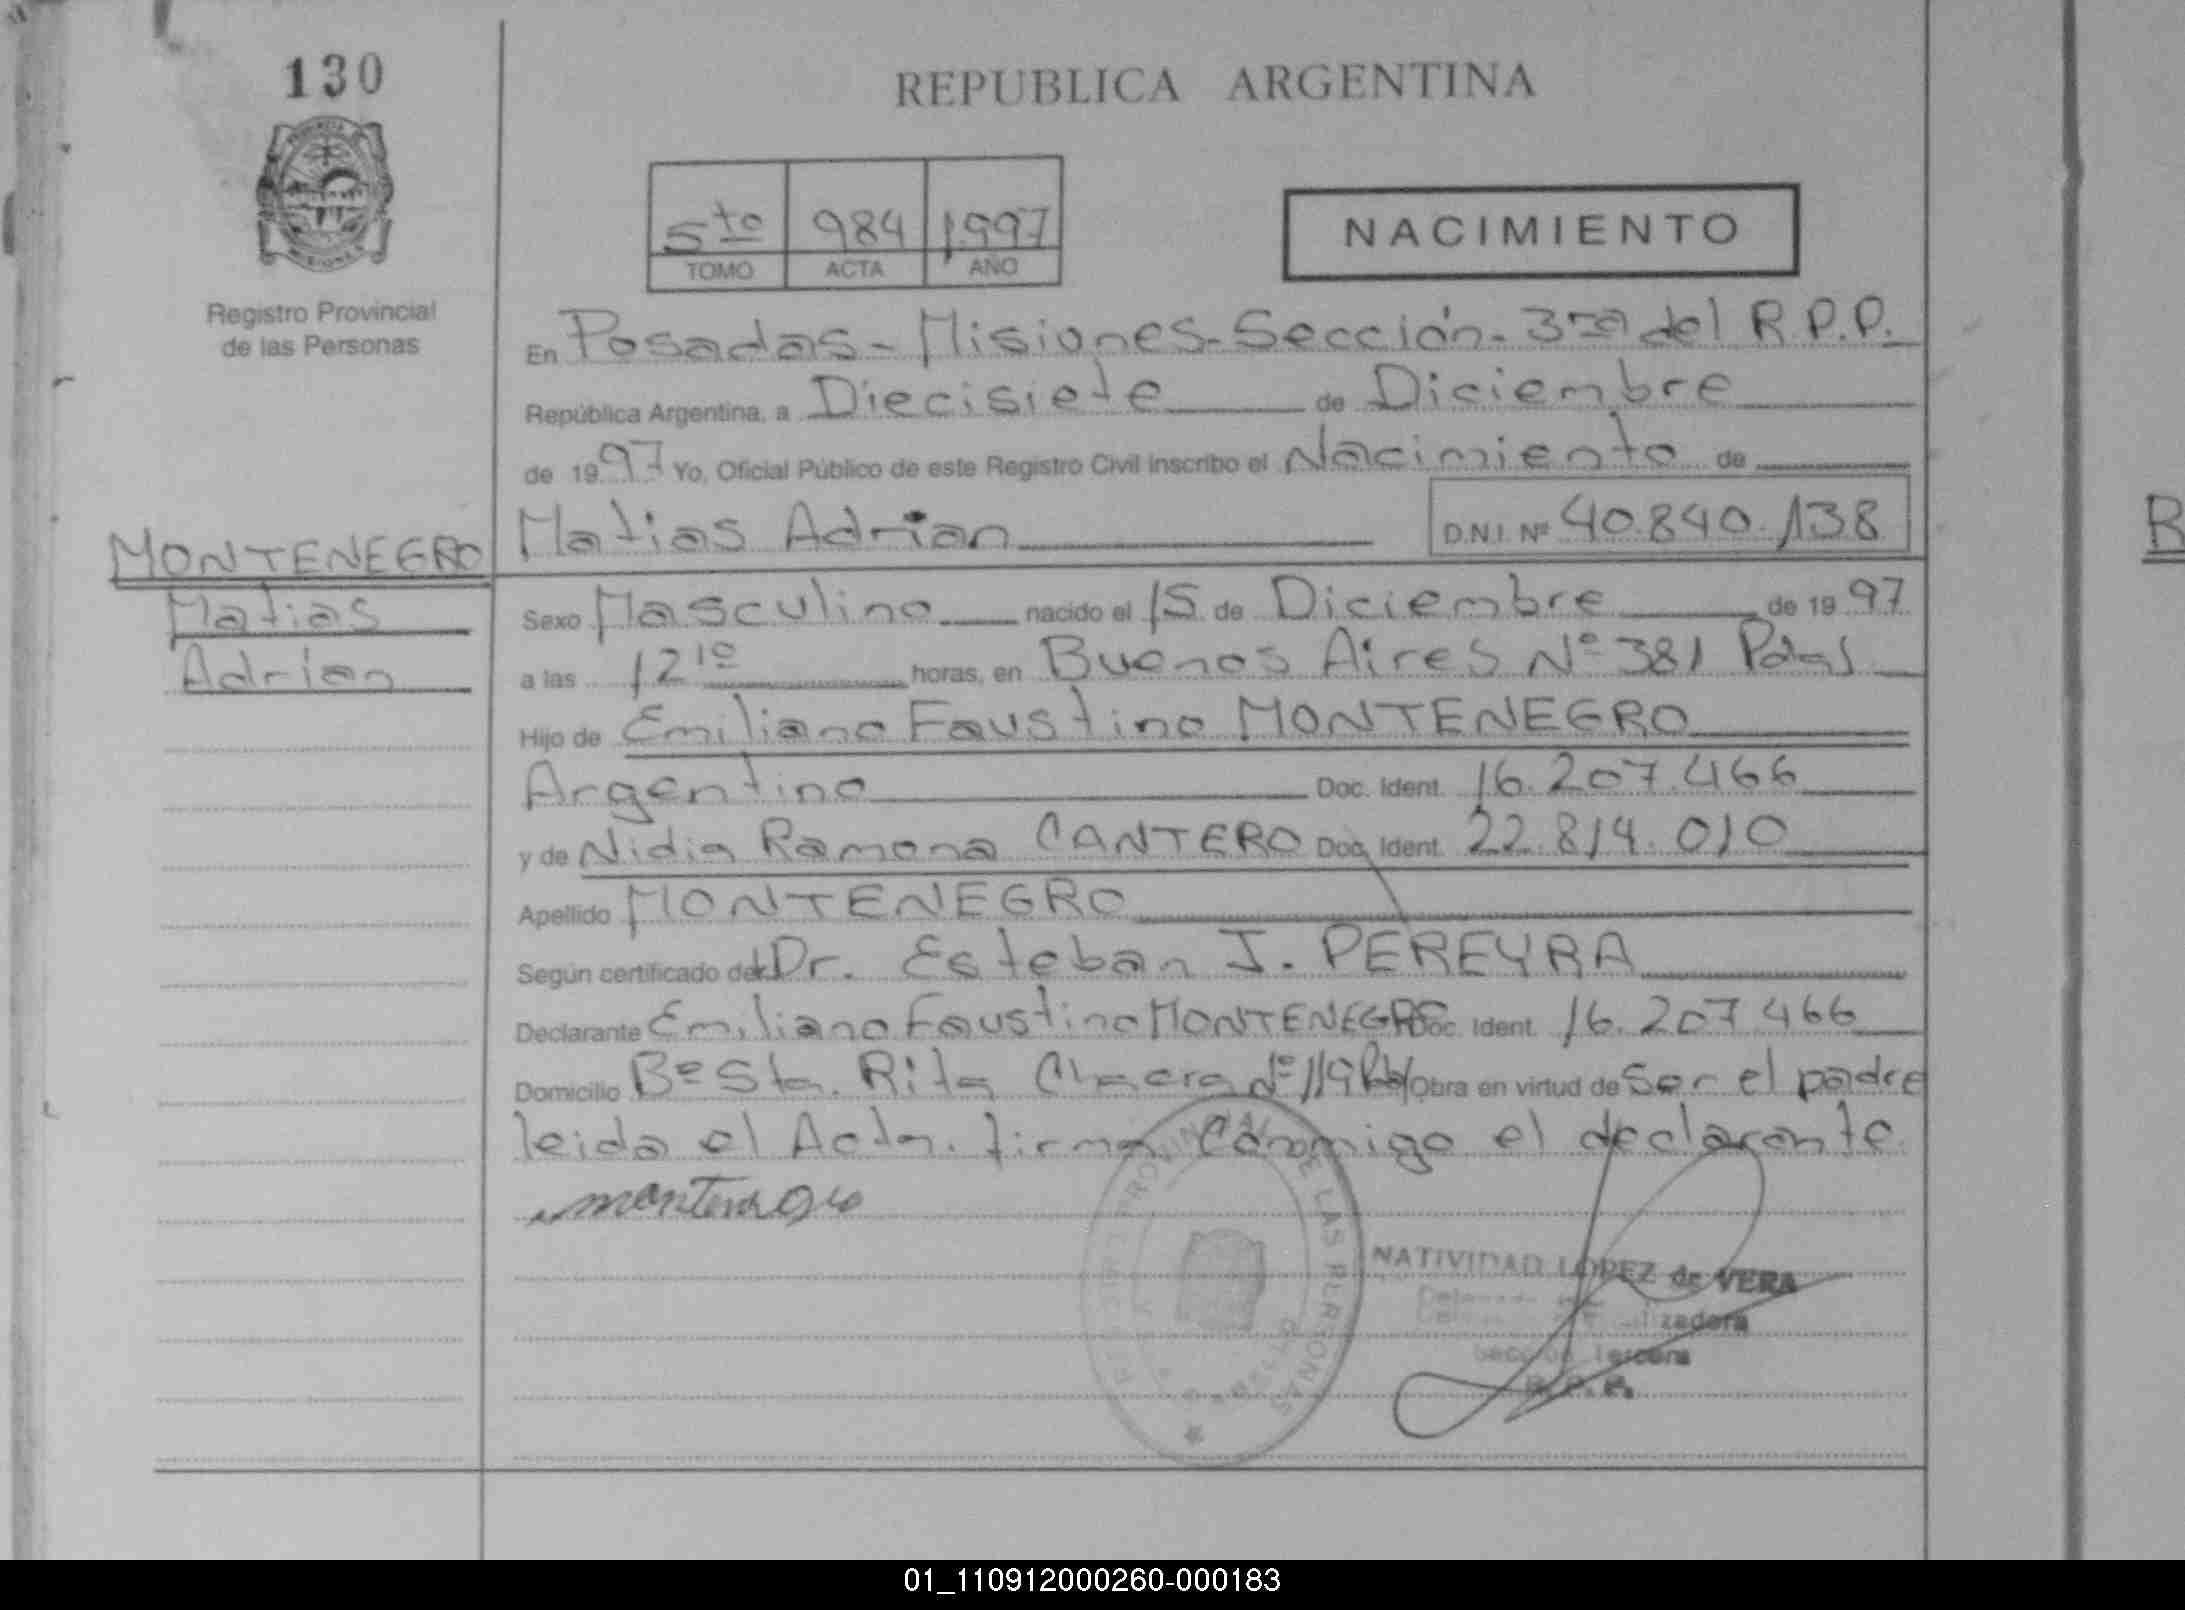 130
REPUBLICA ARGENTINA
5to 984 1997
TOMO ACTA AÑO
NACIMIENTO
Registro Provincial
de las Personas
En Posadas - Misiones - Sección - 3ra del R.P.P.
República Argentina, a Diecisiete de Diciembre
de 1997 Yo, Oficial Público de este Registro Civil inscribo el Nacimiento de
Matias Adrian D.N.I. Nº 40.840.138
MONTENEGRO
Matias
Adrian
Sexo Masculino nacido el 15 de Diciembre de 1997
a las 12 10 horas, en Buenos Aires Nº 381 Pdas
Hijo de Emiliano Faustino MONTENEGRO
Argentino Doc. Ident. 16.207.466
y de Nidia Ramona CANTERO Doc. Ident. 22.814.010
Apellido MONTENEGRO
Según certificado del Dr. Esteban J. PEREYRA
Declarante Emiliano Faustino MONTENEGRO Doc. Ident. 16.207.466
Domicilio Bº Sta. Rita Chacra Nº 119 Obra en virtud de Ser el padre
leida el Acta. firma Conmigo el declarante
montenegro
PROVINCIAL DE LAS PERSONAS
NATIVIDAD LOPEZ de VERA
Sección Tercera
R. P. P.
R
01_110912000260-000183